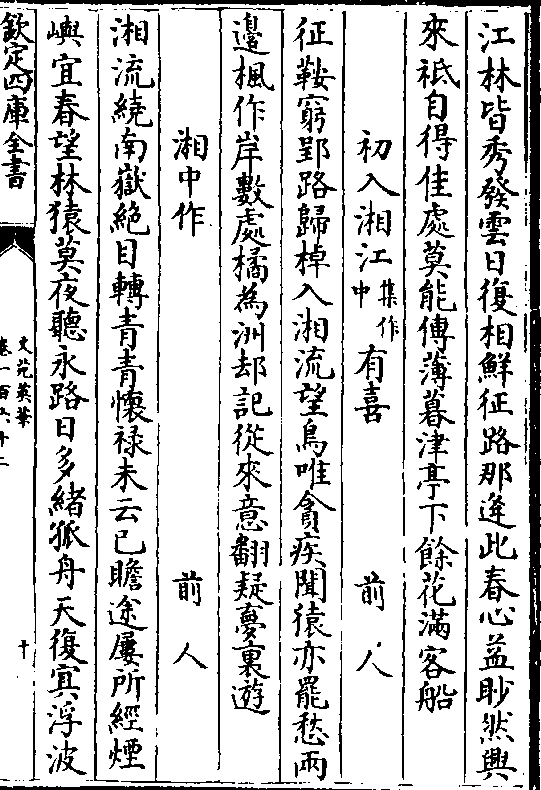 江林皆秀發雲日復相鮮征路那逢此春心益眇然興
來秪自得佳處莫能傳薄暮津亭下餘花滿客船
初入湘江集作中有喜 前人
征鞍窮郢路歸棹入湘流望鳥唯貪疾聞猿亦罷愁兩
邊楓作岸數處橘為洲却記從來意翻疑夢裏遊
湘中作 前人
湘流繞南嶽絶目轉青青懷禄未云已瞻途屢所經煙
嶼宜春望林猿莫夜聽永路日多緒孤舟天復冥浮波
欽定四庫全書
文苑英華
卷一百六十二
十